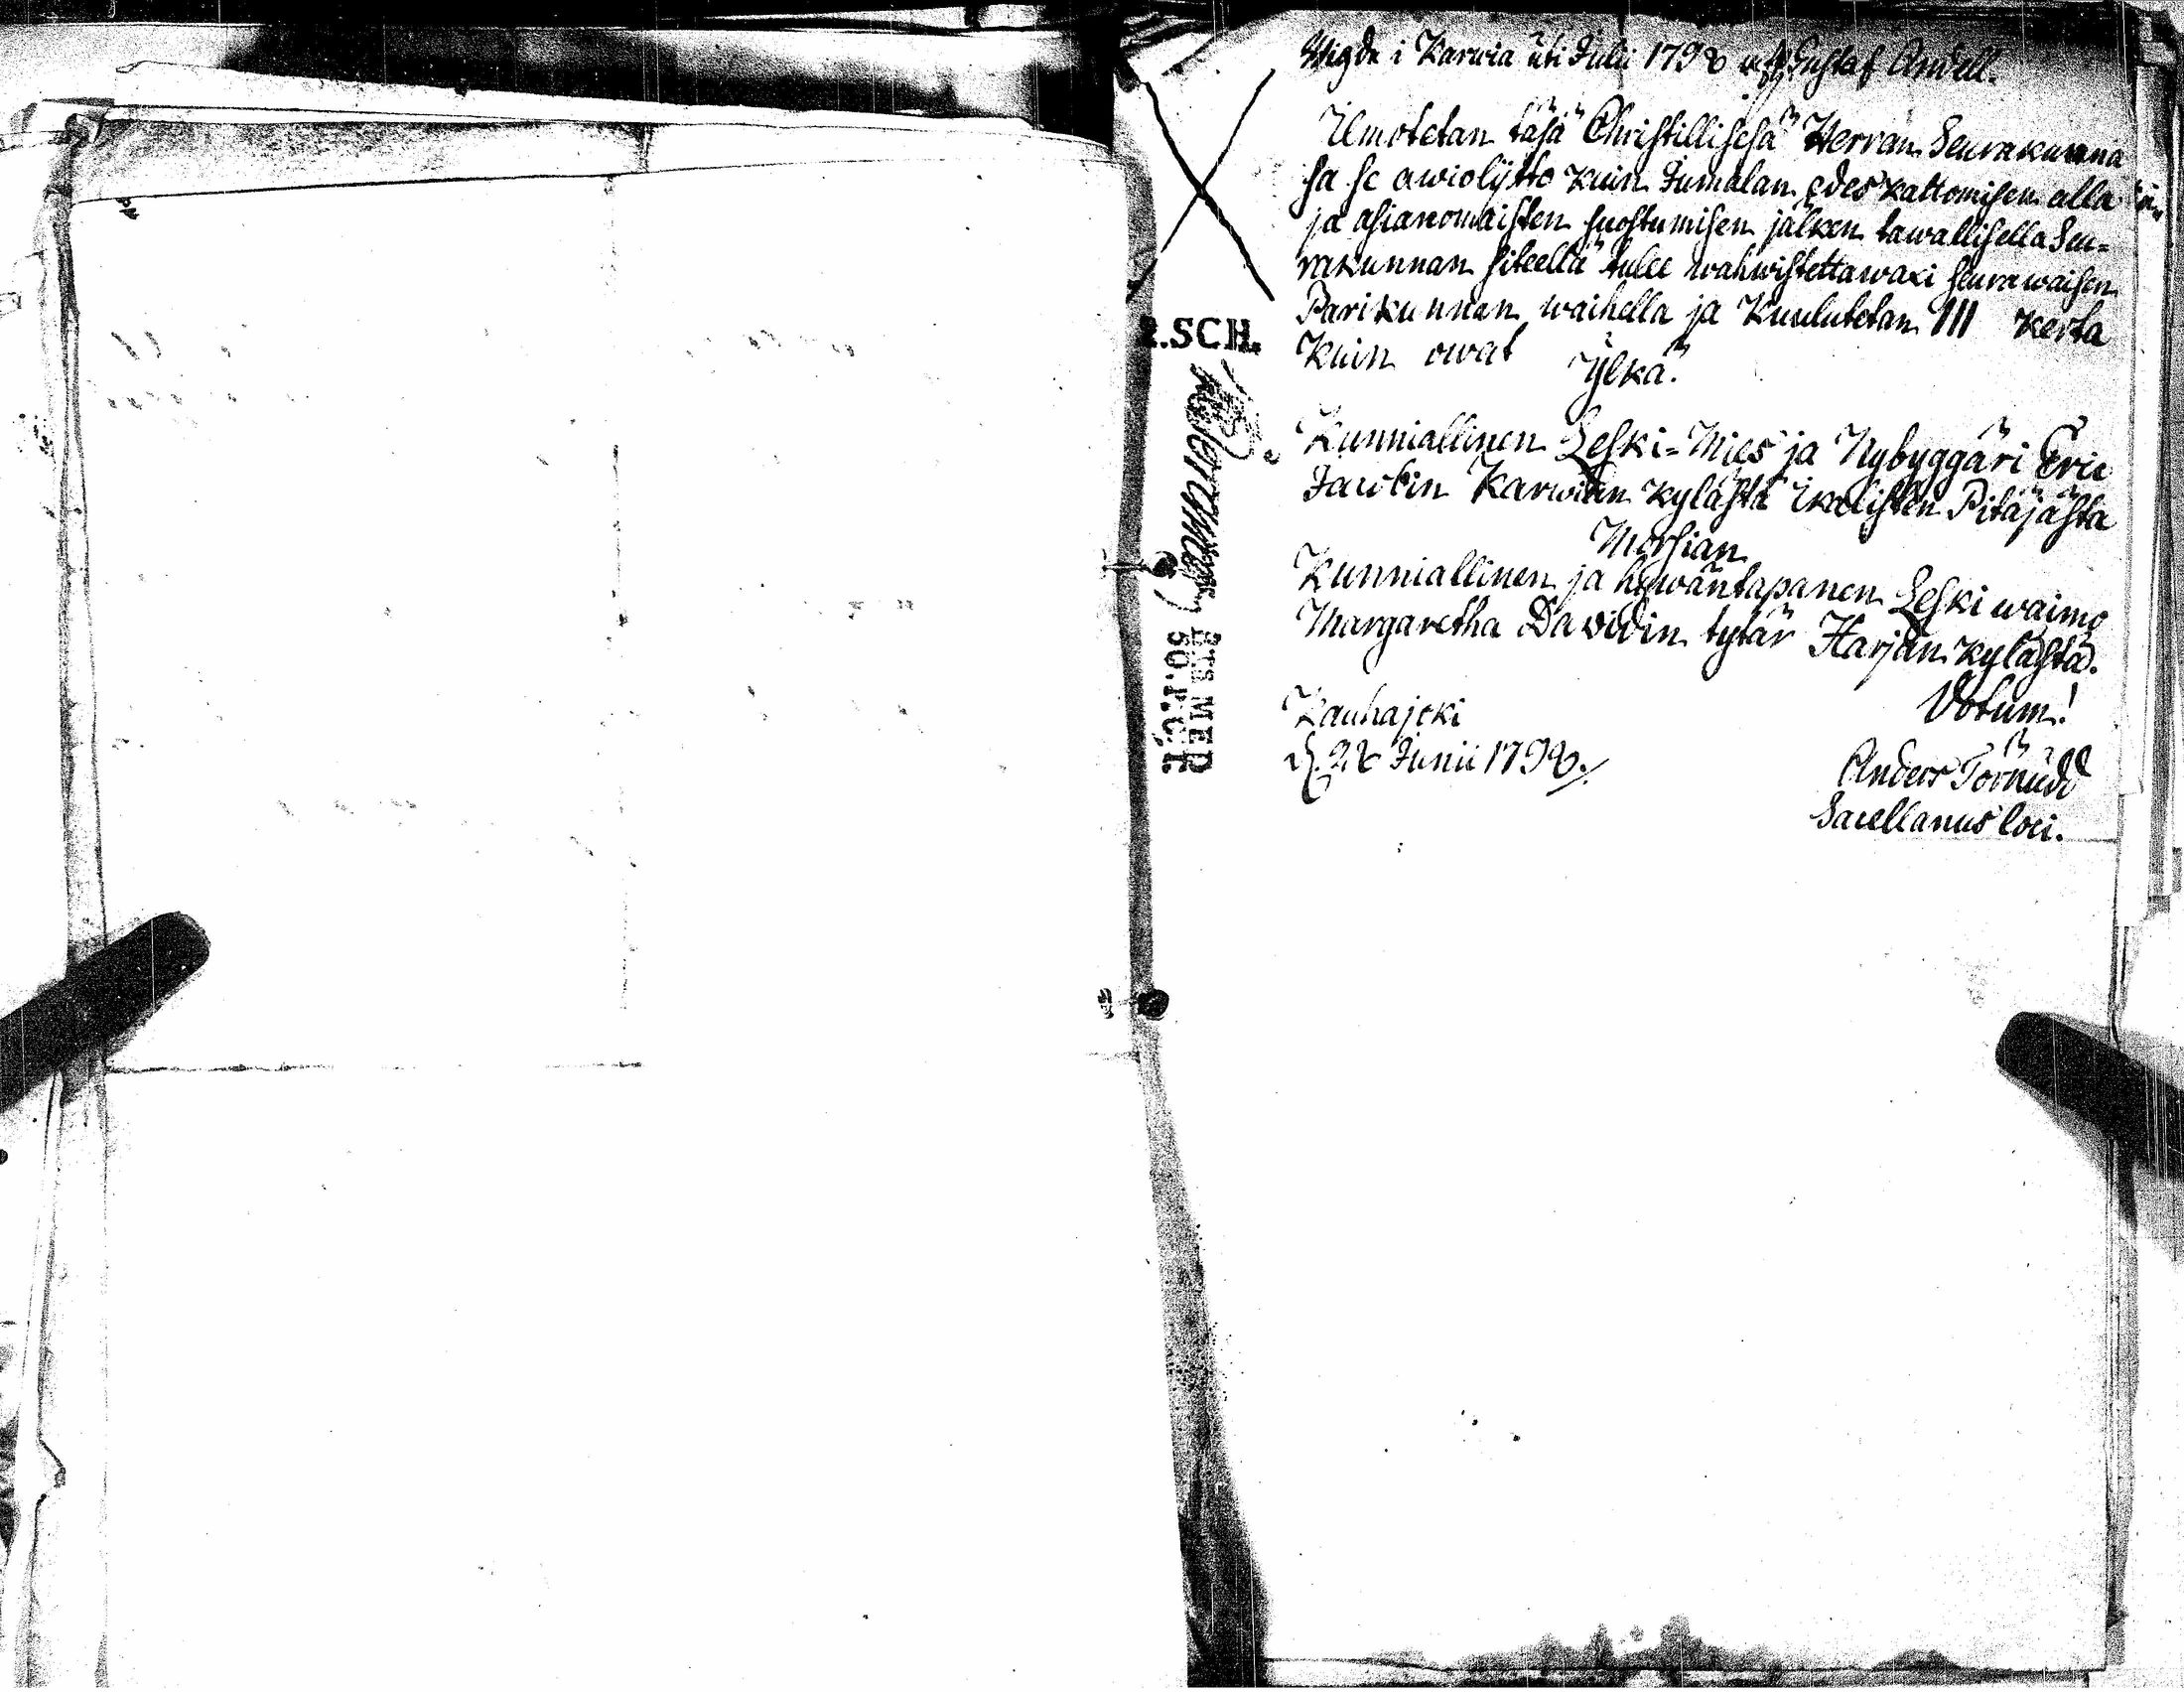 Wigde i Karwia uti Julii 1798 af Gustaf Arwell.
Ilmotetan täsä Christillisesä Herran Seurakunna
sa se awiolijtto kuin Jumalan edes kattomisen alla
ja asianomaisten suostumisen jälken tawallisella Seu-
rakunnan siteellä tulee wahwistettawaxi seurawaisen
Parikunnan waihella ja Kuulutetan III kerta
Kuin owat
Ylkä.
Kunniallinen Leski-Mies ja Nybyggäri Eric
Jacobin Karwian kylästä Ikalisten Pitäjästä
Morsian
Kunniallinen ja hywäntapanen Leski waimo
Margaretha Davidin tytär Harjan kylästä.
Votum!
Kauhajoki
d. 28 Junii 1798.
Anders Törnudd
Sacellanus loci.
2.SCH.